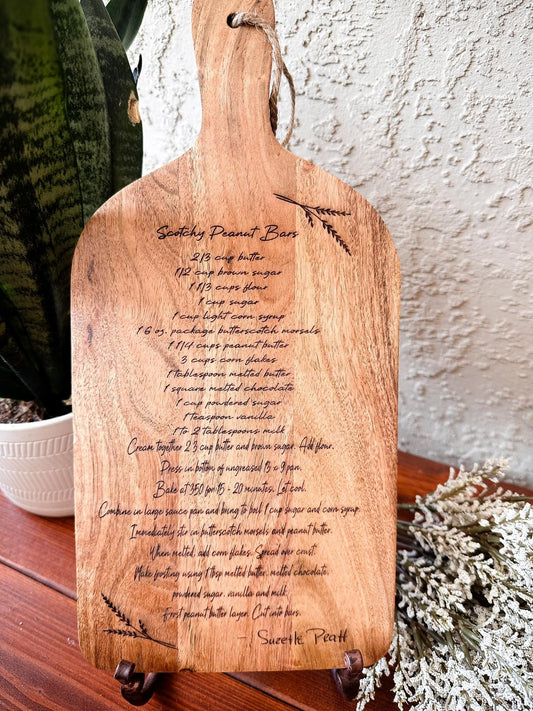 Scotchy Peanut Bars
2/3 cup butter
1/2 cup brown sugar
1 1/3 cups flour
1 cup sugar
1 cup light corn syrup
1 6 oz. package butterscotch morsels
1 1/4 cups peanut butter
3 cups corn flakes
1 tablespoon melted butter
1 square melted chocolate
1 cup powdered sugar
1 teaspoon vanilla
1 to 2 tablespoons milk
Cream together 2/3 cup butter and brown sugar. Add flour.
Press in bottom of ungreased 13 x 9 pan.
Bake at 350 for 15 - 20 minutes. Let cool.
Combine in large sauce pan and bring to boil 1 cup sugar and corn syrup.
Immediately stir in butterscotch morsels and peanut butter.
When melted, add corn flakes. Spread over crust.
Make frosting using 1 tbsp melted butter, melted chocolate,
powdered sugar, vanilla and milk.
Frost peanut butter layer. Cut into bars.
- Suzette Pratt